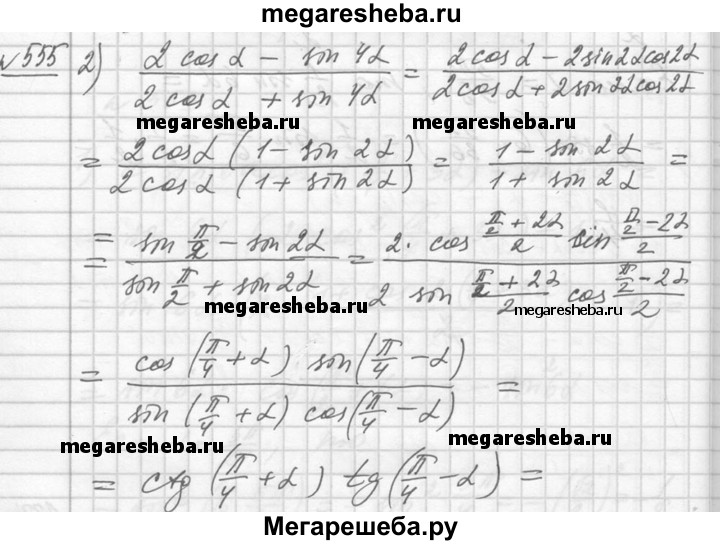 megaresheba.ru
№555 2) (2 cos α − sin 4α)/(2 cos α + sin 4α) = (2 cos α − 2 sin 2α cos 2α)/(2 cos α + 2 sin 2α cos 2α)
megaresheba.ru megaresheba.ru
= (2 cos α (1 − sin 2α))/(2 cos α (1 + sin 2α)) = (1 − sin 2α)/(1 + sin 2α) =
= (sin π/2 − sin 2α)/(sin π/2 + sin 2α) = (2 · cos (π/2 + 2α)/2 sin (π/2 − 2α)/2)/(2 sin (π/2 + 2α)/2 cos (π/2 − 2α)/2)
megaresheba.ru megaresheba.ru
= (cos (π/4 + α) sin (π/4 − α))/(sin (π/4 + α) cos (π/4 − α)) =
megaresheba.ru megaresheba.ru
= ctg (π/4 + α) tg (π/4 − α) =
Мегарешеба.ру